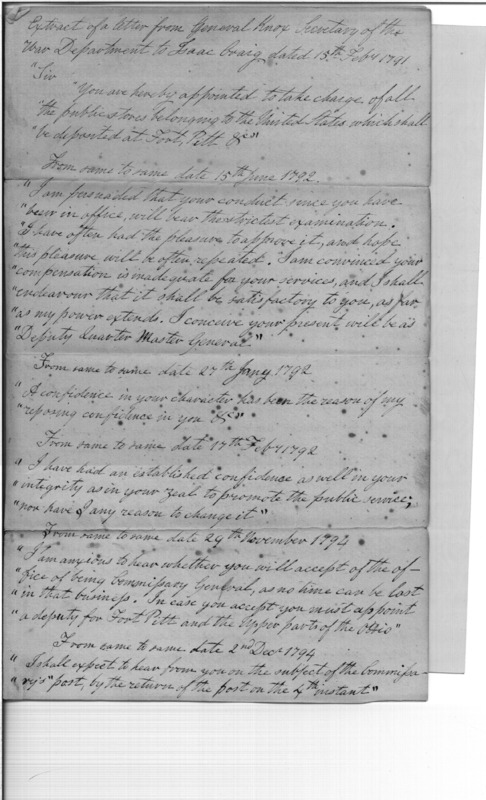 Extract of a letter from General Knox Secretary of the
War Department to Isaac Craig dated 15th Feby 1791
"Sir
"You are hereby appointed to take charge of all
"the public stores belonging to the United States which shall
"be deposited at Fort Pitt &c"
From same to same date 15th June 1792.
"I am persuaded that your conduct since you have
"been in office, will bear the strictest examination.
"I have often had the pleasure to approve it, and hope
"this pleasure will be often repeated. I am convinced your
"compensation is inadequate for your services, and I shall
"endeavour that it shall be satisfactory to you, as far
"as my power extends. I conceive your present will be as
"Deputy Quarter Master General"
From same to same date 27th Jany 1792
"A confidence in your character has been the reason of my
"reposing confidence in you &c"
From same to same date 17th Feby 1792
"I have had an established confidence as well in your
"integrity as in your zeal to promote the public service;
"nor have I any reason to change it"
From same to same date 29th November 1794
"I am anxious to hear whether you will accept of the of-
"fice of being Commissary General, as no time can be lost
"in that business. In case you accept you must appoint
"a deputy for Fort Pitt and the Upper parts of the Ohio"
From same to same date 2nd Decr 1794
"I shall expect to hear from you on the subject of the Commissa-
"ry's post, by the return of the post on the 4th instant"